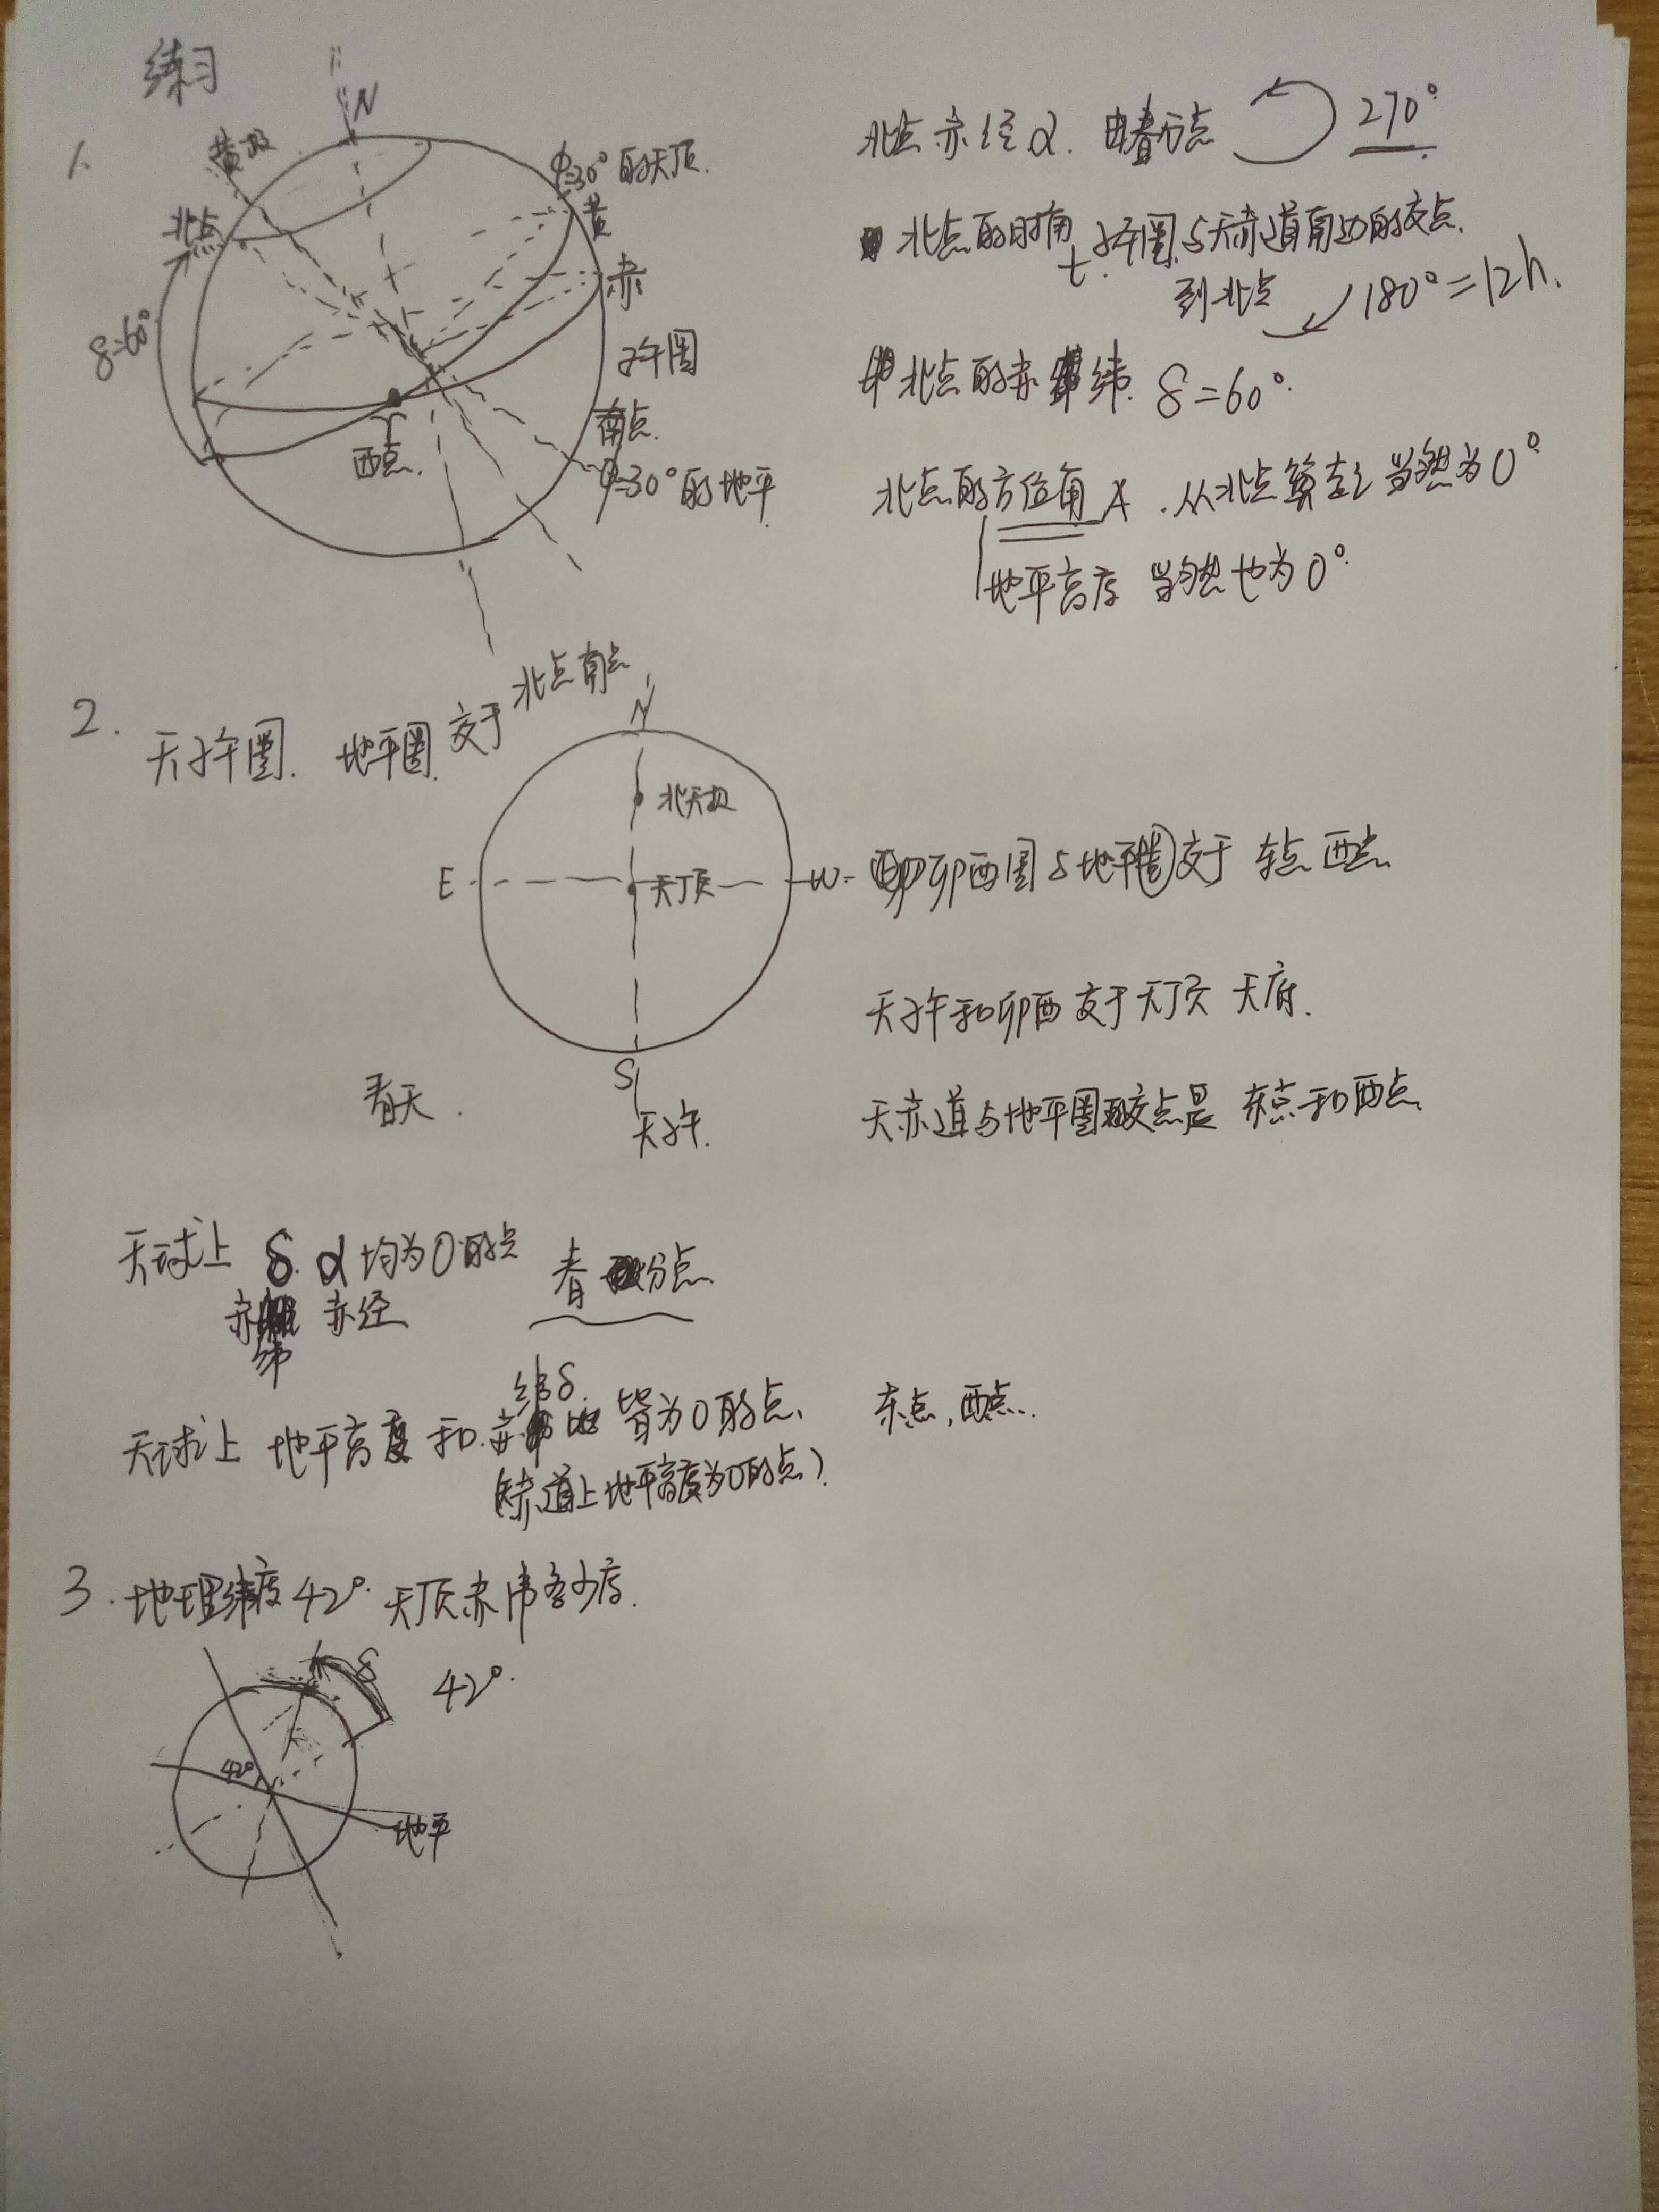 练习
1.
N
黄极
φ=30°的天顶.
北点
黄
赤
δ=60°
子午圈
南点.
φ=30°的地平
♈
西点.
北点赤经α. 由春分点 270°
北点的时角t.子午圈与天赤道南边的交点.
到北点 180°=12h.
北点的赤纬. δ=60°.
北点的方位角A.从北点算起 当然为0°
地平高度 当然也为0°.
2.
天子午圈. 地平圈.交于 北点南点
N
北天极
E
天顶
W
卯酉圈与地平圈交于 东点 西点
天子午和卯酉交于天顶 天底.
S
天子午.
春天.
天赤道与地平圈交点是 东点和西点
天球上 δ.α均为0的点 春分点
赤纬 赤经
天球上 地平高度 和 赤纬δ. 皆为0的点、 东点,西点.
(天赤道上地平高度为0的点)
3.地理纬度42°.天顶赤纬多少度.
δ
42°.
42°
地平